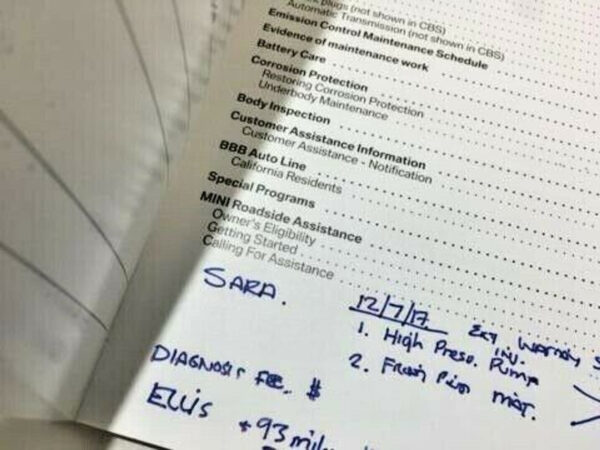 plugs (not shown in CBS)
Automatic Transmission (not shown in CBS)
Emission Control Maintenance Schedule
Evidence of maintenance work
Battery Care
Corrosion Protection
Restoring Corrosion Protection
Underbody Maintenance
Body Inspection
Customer Assistance Information
Customer Assistance - Notification
BBB Auto Line
California Residents
Special Programs
MINI Roadside Assistance
Owner's Eligibility
Getting Started
Calling For Assistance
SARA.
12/7/17
1. High Press. Pump
2.
DIAGNOSIS FEE. $
Ellis
+93